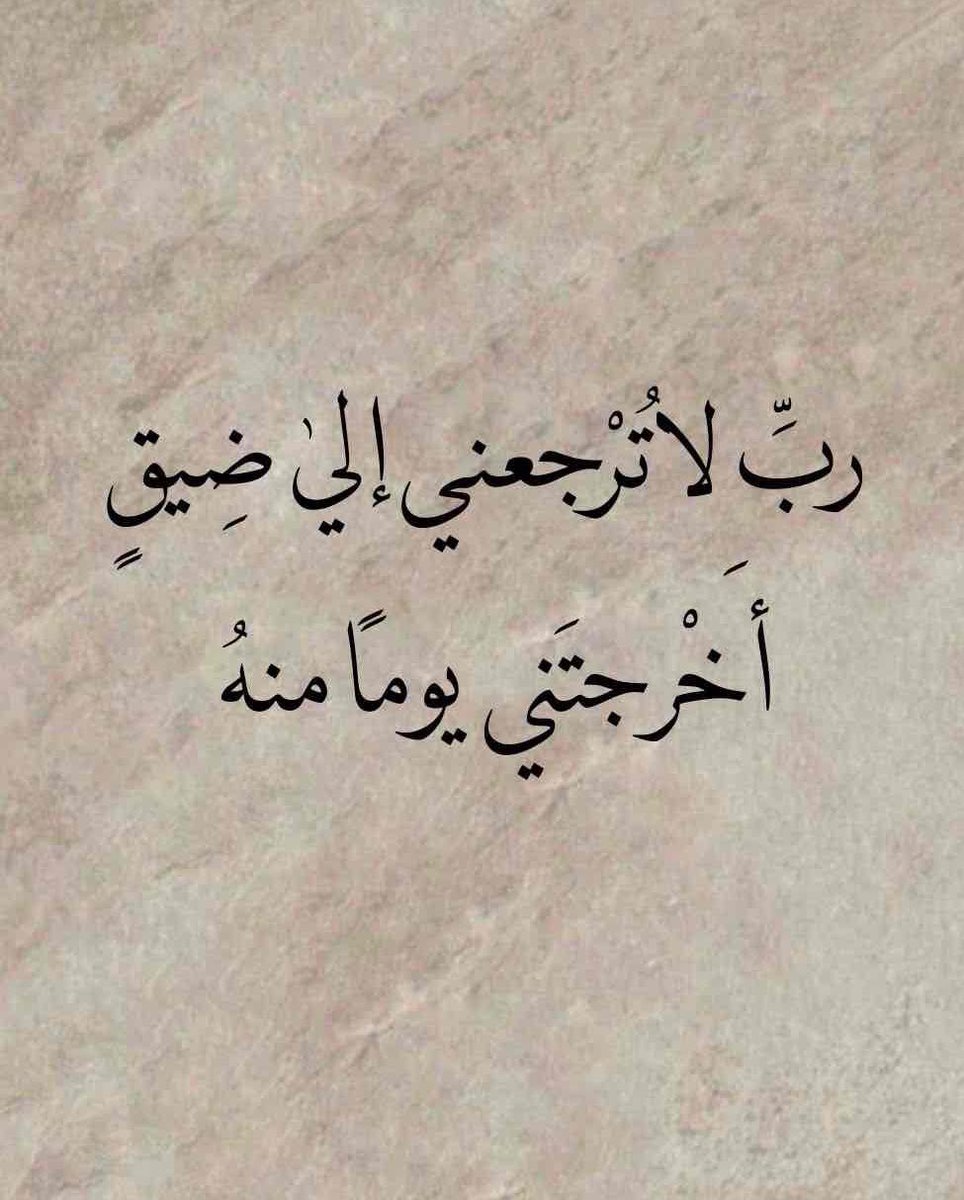 ربِّ لاتُرْجعني إليٰ ضِيقٍ
أَخْرجتَني يومًا منهُ